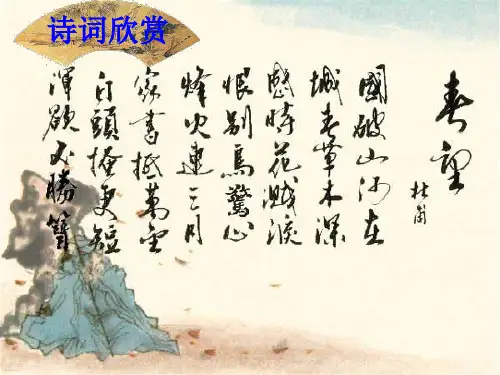 诗词欣赏
春望
杜甫
國破山河在
城春草木深
感時花濺淚
恨別鳥驚心
烽火連三月
家書抵萬金
白頭搔更短
渾欲不勝簪